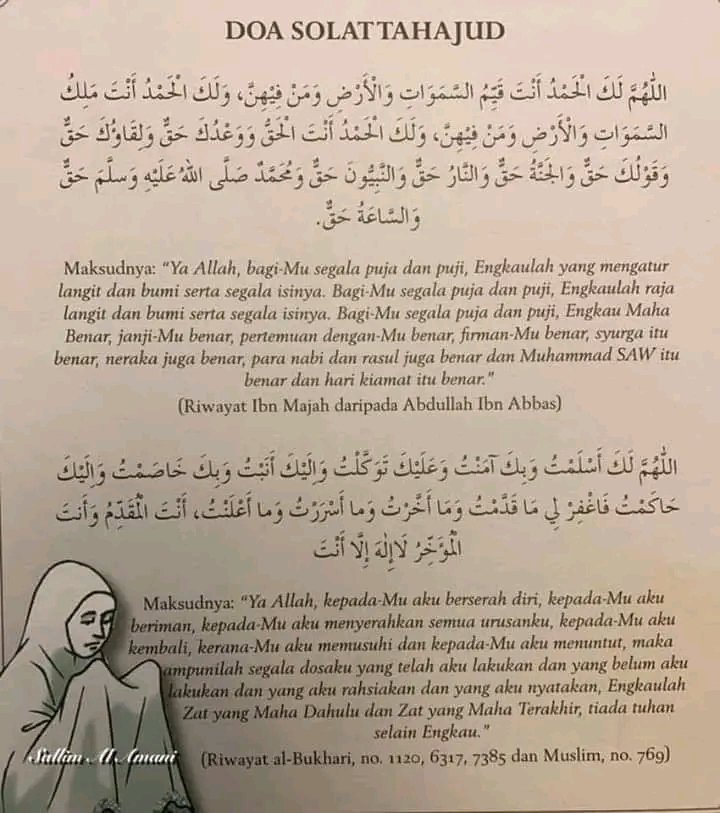 DOA SOLAT TAHAJUD
اللّٰهُمَّ لَكَ الْحَمْدُ أَنْتَ قَيِّمُ السَّمَوَاتِ وَالْأَرْضِ وَمَنْ فِيْهِنَّ، وَلَكَ الْحَمْدُ أَنْتَ مَلِكُ
السَّمَوَاتِ وَالْأَرْضِ وَمَنْ فِيْهِنَّ، وَلَكَ الْحَمْدُ أَنْتَ الْحَقُّ وَوَعْدُكَ حَقٌّ وَلِقَاؤُكَ حَقٌّ
وَقَوْلُكَ حَقٌّ وَالْجَنَّةُ حَقٌّ وَالنَّارُ حَقٌّ وَالنَّبِيُّونَ حَقٌّ وَمُحَمَّدٌ صَلَّى اللهُ عَلَيْهِ وَسلَّمَ حَقٌّ
وَالسَّاعَةُ حَقٌّ.
Maksudnya: “Ya Allah, bagi-Mu segala puja dan puji, Engkaulah yang mengatur
langit dan bumi serta segala isinya. Bagi-Mu segala puja dan puji, Engkaulah raja
langit dan bumi serta segala isinya. Bagi-Mu segala puja dan puji, Engkau Maha
Benar, janji-Mu benar, pertemuan dengan-Mu benar, firman-Mu benar, syurga itu
benar, neraka juga benar, para nabi dan rasul juga benar dan Muhammad SAW itu
benar dan hari kiamat itu benar.”
(Riwayat Ibn Majah daripada Abdullah Ibn Abbas)
اللّٰهُمَّ لَكَ أَسْلَمْتُ وَبِكَ آمَنْتُ وَعَلَيْكَ تَوَكَّلْتُ وَإِلَيْكَ أَنَبْتُ وَبِكَ خَاصَمْتُ وَإِلَيْكَ
حَاكَمْتُ فَاغْفِرْ لِي مَا قَدَّمْتُ وَمَا أَخَّرْتُ وَما أَسْرَرْتُ وَما أَعْلَنْتُ، أَنْتَ الْمُقَدِّمُ وَأَنتَ
الْمُؤَخِّرُ لَا إِلٰهَ إِلَّا أَنْتَ
Maksudnya: “Ya Allah, kepada-Mu aku berserah diri, kepada-Mu aku
beriman, kepada-Mu aku menyerahkan semua urusanku, kepada-Mu aku
kembali, kerana-Mu aku memusuhi dan kepada-Mu aku menuntut, maka
ampunilah segala dosaku yang telah aku lakukan dan yang belum aku
lakukan dan yang aku rahsiakan dan yang aku nyatakan, Engkaulah
Zat yang Maha Dahulu dan Zat yang Maha Terakhir, tiada tuhan
selain Engkau.”
(Riwayat al-Bukhari, no. 1120, 6317, 7385 dan Muslim, no. 769)
Sallim Al Amani